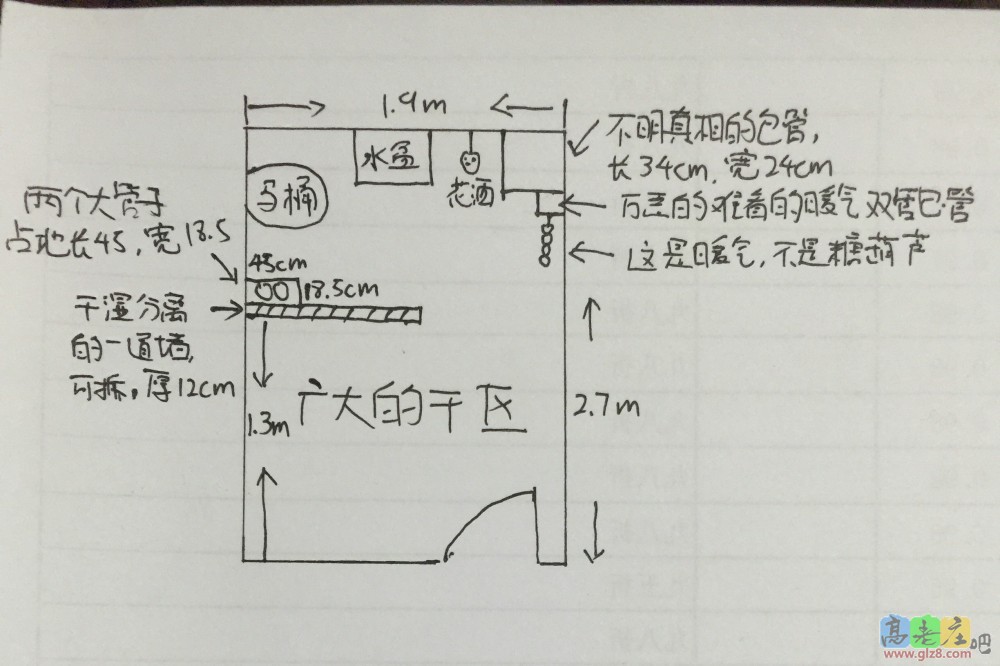 1.9m
不明真相的包管,
长34cm, 宽24cm
水盆
花洒
马桶
万恶的难看的暖气双管包管
这是暖气, 不是糖葫芦
两个大管子
占地长45, 宽18.5
45cm
18.5cm
干湿分离
的一道墙,
可拆。厚12cm
广大的干区
1.3m
2.7m
高老庄吧
www.glz8.com